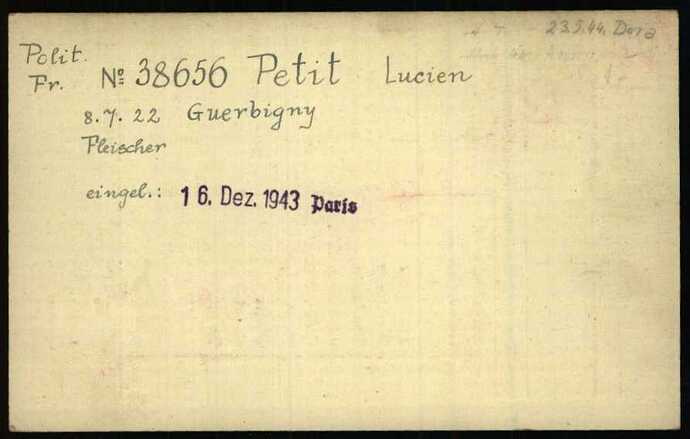 23.5.44. Dora
Polit.
Fr. № 38656 Petit Lucien
8.7.22 Guerbigny
Fleischer
eingel.: 16. Dez. 1943 Paris